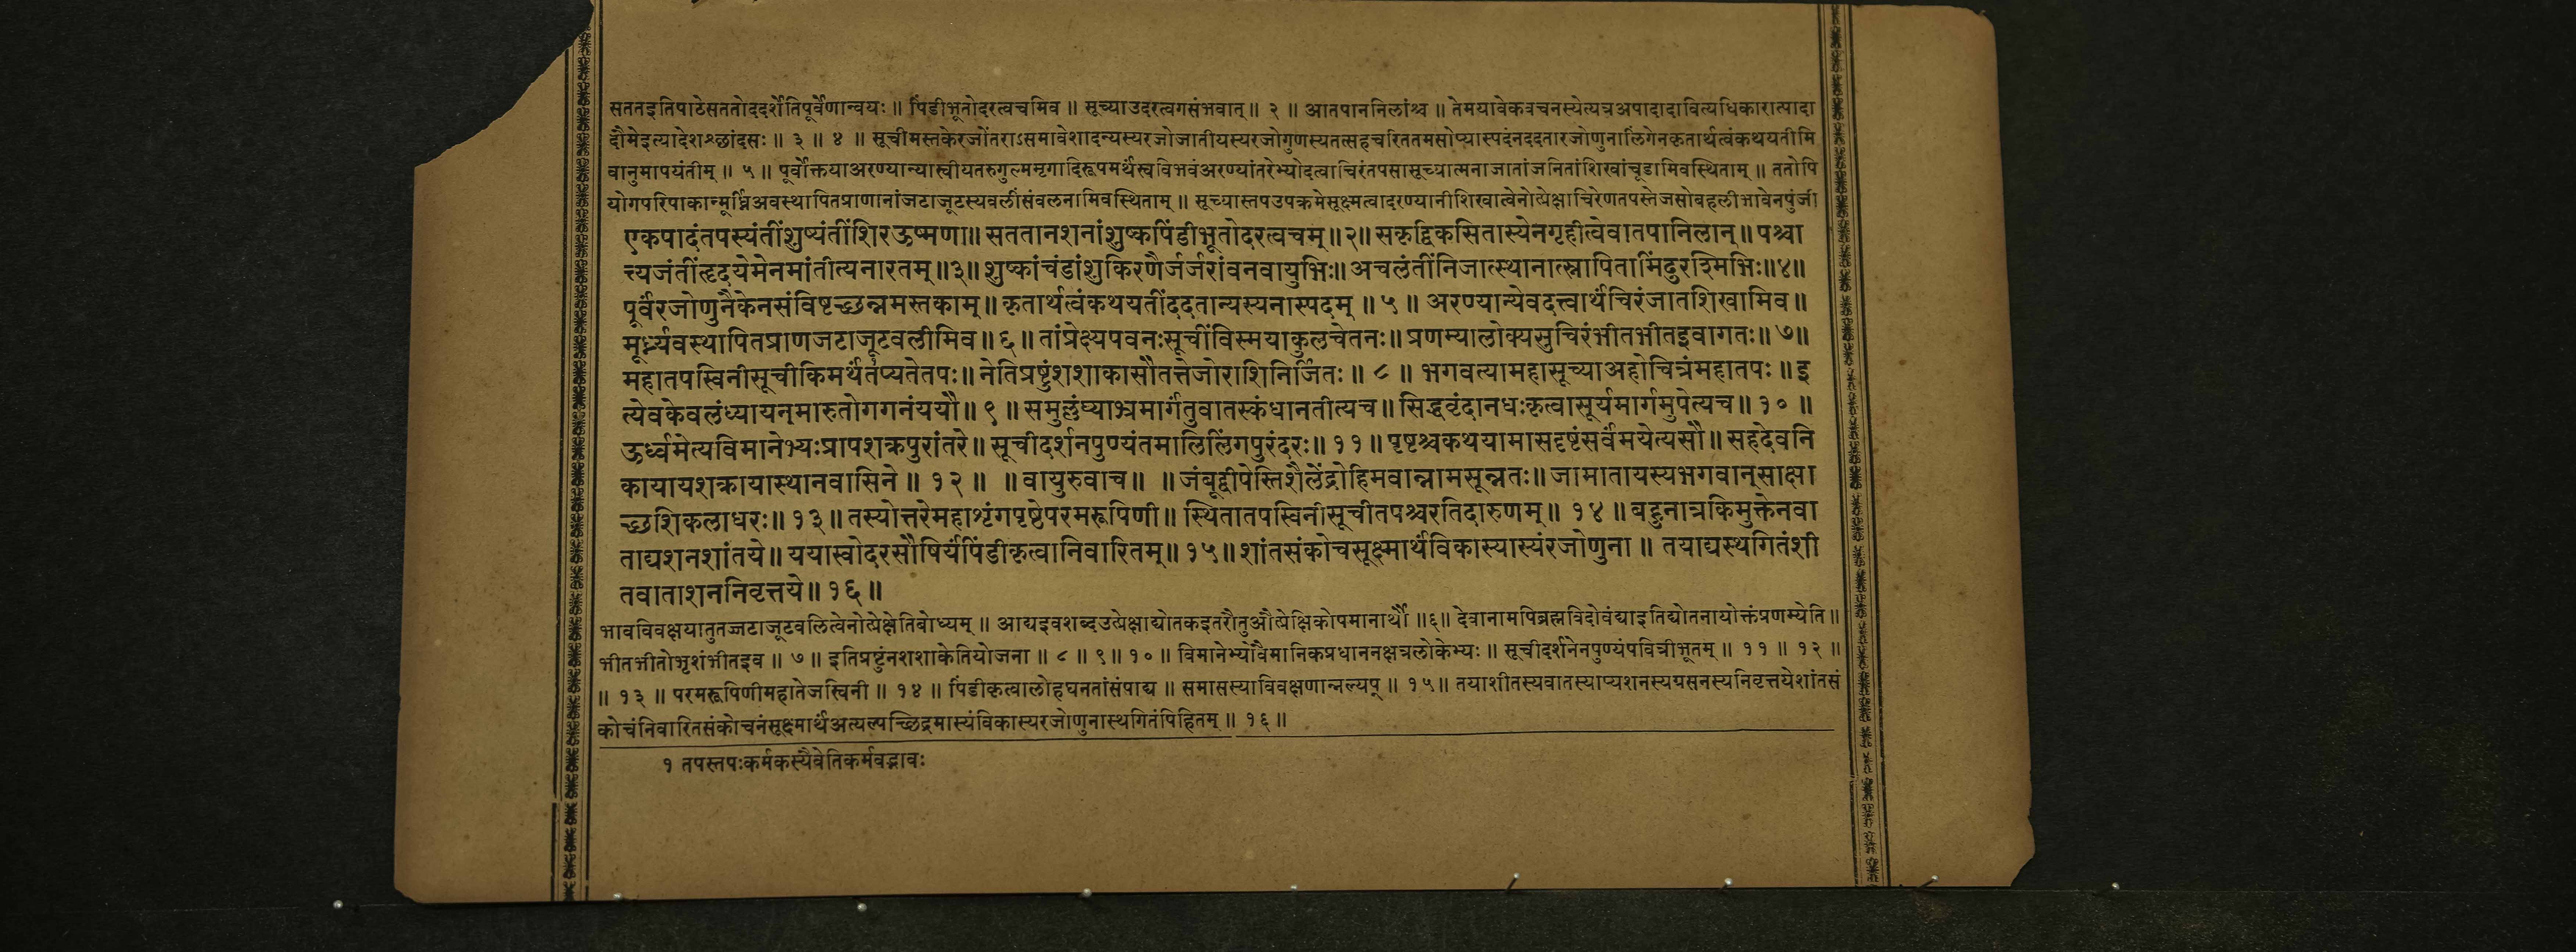 सततइतिपाठेसततोददर्शेतिपूर्वेणान्वयः ॥ पिंडीभूतोदरत्वचमिव ॥ सूच्याउदरत्वगसंभवात् ॥ २ ॥ आतपाननिलांश्च ॥ तेमयावेकवचनस्येत्यत्रअपादादावित्यधिकारात्पादा
दौमेइत्यादेशश्छांदसः ॥ ३ ॥ ४ ॥ सूचीमस्तकेरजोंतराऽसमावेशादन्यस्यरजोजातीयस्यरजोगुणस्यतत्सहचरिततमसोप्यास्पदंनददतारजोणुनालिंगेनकृतार्थत्वंकथयतीमि
वानुमापयंतीम् ॥ ५ ॥ पूर्वोक्तयाअरण्यान्यास्वीयतरुगुल्ममृगादिरूपमर्थंस्वविभवंअरण्यांतरेभ्योदत्वाचिरंतपसासूच्यात्मनाजातांजनितांशिखांचूडामिवस्थिताम् ॥ ततोपि
योगपरिपाकान्मूर्ध्निअवस्थापितप्राणानांजटाजूटस्यवलीसंवलनामिवस्थिताम् ॥ सूच्यास्तपउपक्रमेसूक्ष्मत्वादरण्यानीशिखात्वेनोत्प्रेक्षाचिरेणतपस्तेजसोबहलीभावेनपुंजी
एकपादंतपस्यंतींशुष्यंतींशिरऊष्मणा॥ सततानशनांशुष्कपिंडीभूतोदरत्वचम्॥२॥ सकृद्विकसितास्येनगृहीत्वेवातपानिलान्॥ पश्चा
त्त्यजंतींत्हृदयेमेनमांतीत्यनारतम्॥३॥ शुष्कांचंडांशुकिरणैर्जर्जरांवनवायुभिः॥ अचलंतींनिजात्स्थानात्स्नापितामिंदुरश्मिभिः॥४॥
पूर्वरजोणुनैकेनसंविष्टच्छन्नमस्तकाम्॥ कृतार्थत्वंकथयतींददतान्यस्यनास्पदम् ॥ ५ ॥ अरण्यान्येवदत्त्वार्थंचिरंजातशिखामिव॥
मूर्ध्न्यवस्थापितप्राणजटाजूटवलीमिव॥६॥ तांप्रेक्ष्यपवनःसूचींविस्मयाकुलचेतनः॥ प्रणम्यालोक्यसुचिरंभीतभीतइवागतः॥ ७॥
महातपस्विनीसूचीकिमर्थंतप्यतेतपः॥ नेतिप्रष्टुंशशाकासौतत्तेजोराशिनिर्जितः॥ ८ ॥ भगवत्यामहासूच्याअहोचित्रंमहातपः॥ इ
त्येवकेवलंध्यायन्मारुतोगगनंययौ॥ ९ ॥ समुल्लंघ्याभ्रमार्गंतुवातस्कंधानतीत्यच॥ सिद्धवृंदानधःकृत्वासूर्यमार्गमुपेत्यच॥ १० ॥
ऊर्ध्वमेत्यविमानेभ्यःप्रापशक्रपुरांतरे॥ सूचीदर्शनपुण्यंतमालिलिंगपुरंदरः॥ ११॥ पृष्टश्चकथयामासदृष्टंसर्वंमयेत्यसौ॥ सहदेवनि
कायायशक्रायास्थानवासिने ॥ १२ ॥ ॥ वायुरुवाच॥ ॥ जंबूद्वीपेस्तिशैलेंद्रोहिमवान्नामसून्नतः॥ जामातायस्यभगवान्साक्षा
च्छशिकलाधरः॥ १३॥ तस्योत्तरेमहाशृंगपृष्ठेपरमरूपिणी॥ स्थितातपस्विनीसूचीतपश्चरतिदारुणम्॥ १४ ॥ बहुनात्रकिमुक्तेनवा
ताद्यशनशांतये॥ ययास्वोदरसौषिर्यंपिंडीकृत्वानिवारितम्॥ १५॥ शांतसंकोचसूक्ष्मार्थंविकास्यास्यंरजोणुना ॥ तयाद्यस्थगितंशी
तवाताशननिवृत्तये॥ १६॥
भावविवक्षयातुतज्जटाजूटवलित्वेनोत्प्रेक्षेतिबोध्यम् ॥ आद्यइवशब्दउत्प्रेक्षाद्योतकइतरौतुऔत्प्रेक्षिकोपमानार्थौ ॥६॥ देवानामपिब्रह्मविदोवंद्याइतिद्योतनायोक्तंप्रणम्येति॥
भीतभीतोभृशंभीतइव ॥ ७ ॥ इतिप्रष्टुंनशशाकेतियोजना ॥ ८ ॥ ९॥ १० ॥ विमानेभ्योवैमानिकप्रधाननक्षत्रलोकेभ्यः ॥ सूचीदर्शनेनपुण्यंपवित्रीभूतम् ॥ ११ ॥ १२ ॥
॥ १३ ॥ परमरूपिणीमहातेजस्विनी ॥ १४ ॥ पिंडीकृत्वालोहघनतांसंपाद्य ॥ समासस्याविवक्षणान्नल्यप् ॥ १५॥ तयाशीतस्यवातस्याप्यशनस्यग्रसनस्यनिवृत्तयेशांतसं
कोचंनिवारितसंकोचनंसूक्ष्मार्थंअत्यल्पच्छिद्रमास्यंविकास्यरजोणुनास्थगितंपिहितम् ॥ १६ ॥
१ तपस्तपःकर्मकस्यैवेतिकर्मवद्भावः